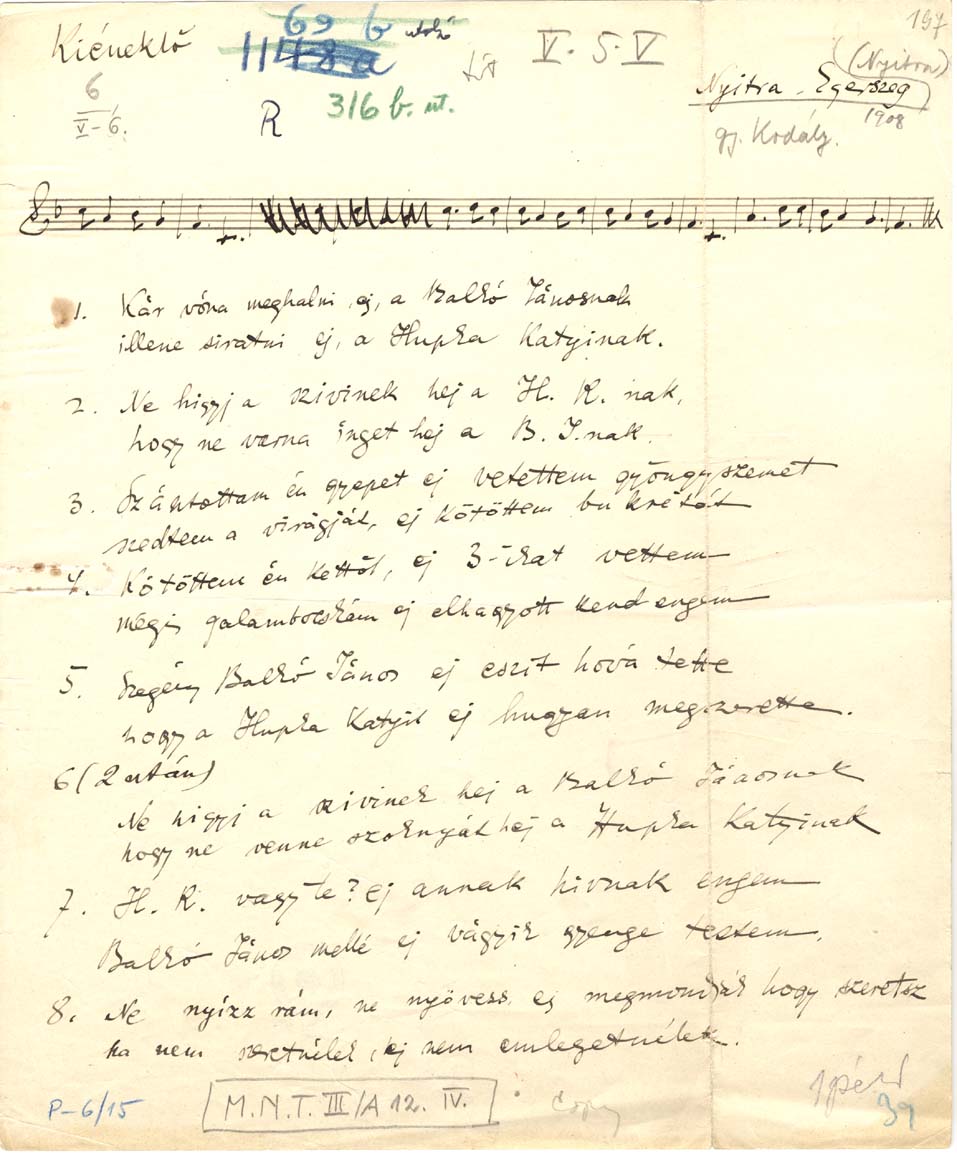 197
Kiéneklő
69 b utolsó
1148a
V. 5. V
(Nyitra)
Nyitra-Egerszeg
1908
6
V-6.
R
316 b. ut.
gy. Kodály.
1. Kár vóna meghalni ej, a Balkó Jánosnak
illene siratni ej, a Hupka Katyinak.
2. Ne higyj a szivinek hej a H. K. nak,
hogy ne varna inget hej a B. J.nak.
3. Szántottam én gyepet ej vetettem gyöngyszemet
szedtem a virágját, ej kötöttem bukrétát
4. Kötöttem én kettőt, ej 3-ikat vettem
mégis galambocskám ej elhagyott kend engem
5. Szegény Balkó János ej eszit hová tette
hogy a Hupka Katyit ej hugyan megszerette.
6 (2 után)
Ne higyj a szivinek hej a Balkó Jánosnak
hogy ne venne szoknyát hej a Hupka Katyinak
7. H. K. vagy te? ej annak hivnak engem
Balkó János mellé ej vágyik gyenge testem.
8. Ne nyízz rám, ne nyövess ej megmondják hogy szeretsz
ha nem szeretnélek, ej nem emlegetnélek.
P-6/15
M.N.T. III/A 12. IV.
39